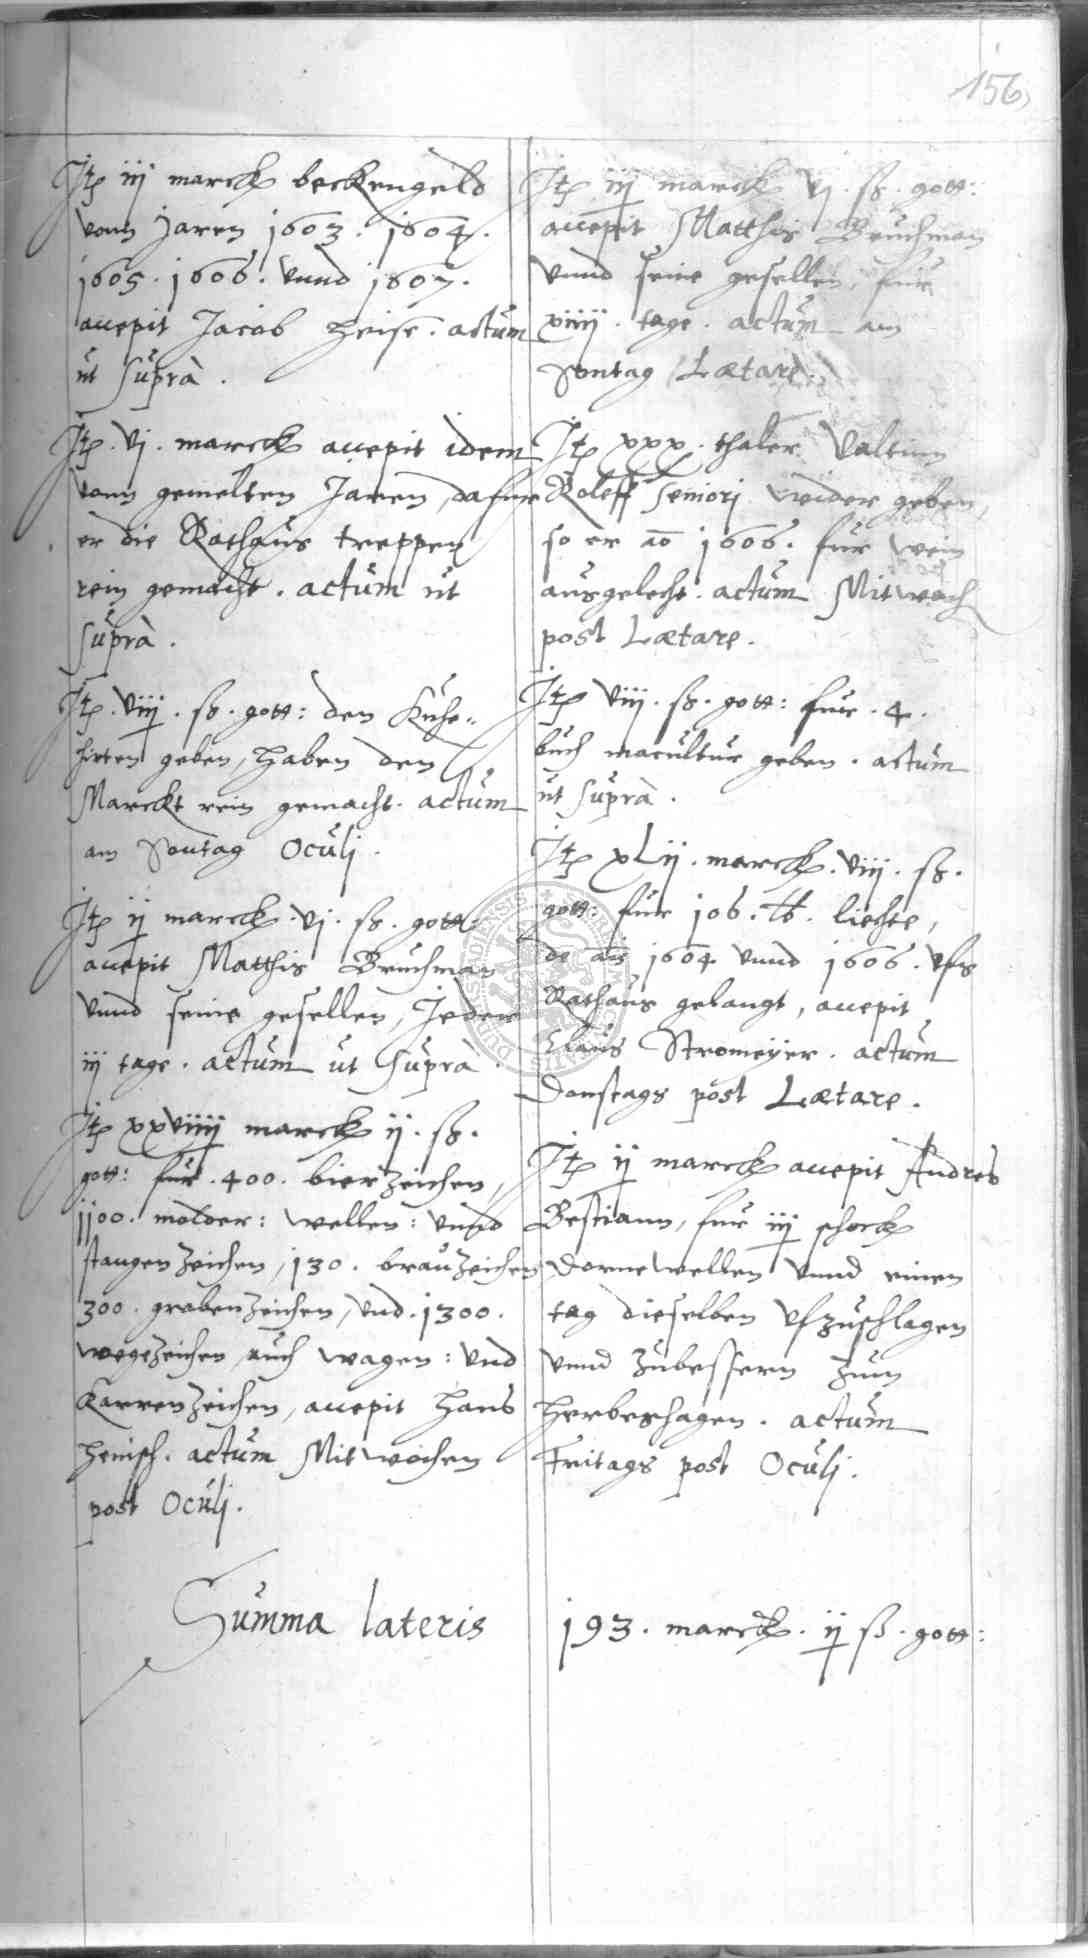 156
Itꝑ iij marck beckengeld
vonn jaren 1603. 1604.
1605. 1606. vnnd 1607.
accepit Jacob Heise. actum
ut suprà.
Itꝑ. vj. marck accepit idem
vonn gemelten Jaren, dafur
er die Rathaus treppen
rein gemacht. actum ut
suprà.
Itꝑ. viij. ß. gott: den Kuhe-
hirten geben, haben den
Marckt rein gemacht. actum
am Sontag Oculj.
Itꝑ ij marck. vj. ß. gott:
accepit Matthis Bruchman
vnnd seine gesellen, Jeder
iij tage. actum ut suprà.
Itꝑ xxviiij marck ij. ß.
gott: fur. 400. bierzeichen,
1100. molder: wellen: vnnd
stangenzeichen, 130. brauzeichen
300. grabenzeichen, vnd. 1300.
wegezeichen, auch wagen: vnd
Karrenzeichen, accepit Hans
Henisch. actum Mitwochen
post Oculj.
Itꝑ iij marck vj. ß. gott:
accepit Matthis Bruchman
vnnd seine gesellen, fur
xiiij. tage. actum am
Sontag Lætare.
Itꝑ xxx. thaler Valtinn
Roleff Seniorj wider geben,
so er aõ 1606. fur wein
ausgelecht. actum Mitwoch
post Lætare.
Itꝑ viij. ß. gott: fur. 4.
buch macultur geben. actum
ut suprà.
Itꝑ xLij. marck. viij. ß.
gott: fur 106. ℔. liechte,
de añ 1604 vnnd 1606. vfs
Rathaus gelangt, accepit
Claus Stromeyer. actum
Donstags post Lætare.
Itꝑ ij marck accepit Andres
Bestiann, fur iij schock
dornewellen vnnd einen
tag dieselben vfzuschlagen
vnnd zubessern zum
Herbeshagen. actum
Fritags post Oculj.
Summa lateris 193. marck. ij ß. gott: